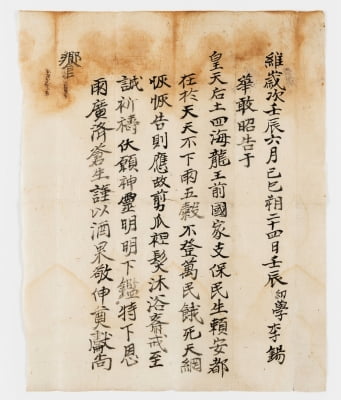 維歲次壬辰六月己巳朔二十四日壬辰幼學李鍚
華敢昭告于
皇天后土四海龍王前國家支保民生賴安都
在於天天不下雨五穀不登萬民餓死天網
恢恢告則應故剪瓜袒髮沐浴齋戒至
誠祈禱伏願神靈明明下鑑特下恩
雨廣濟蒼生謹以酒果敬伸奠獻尚
饗